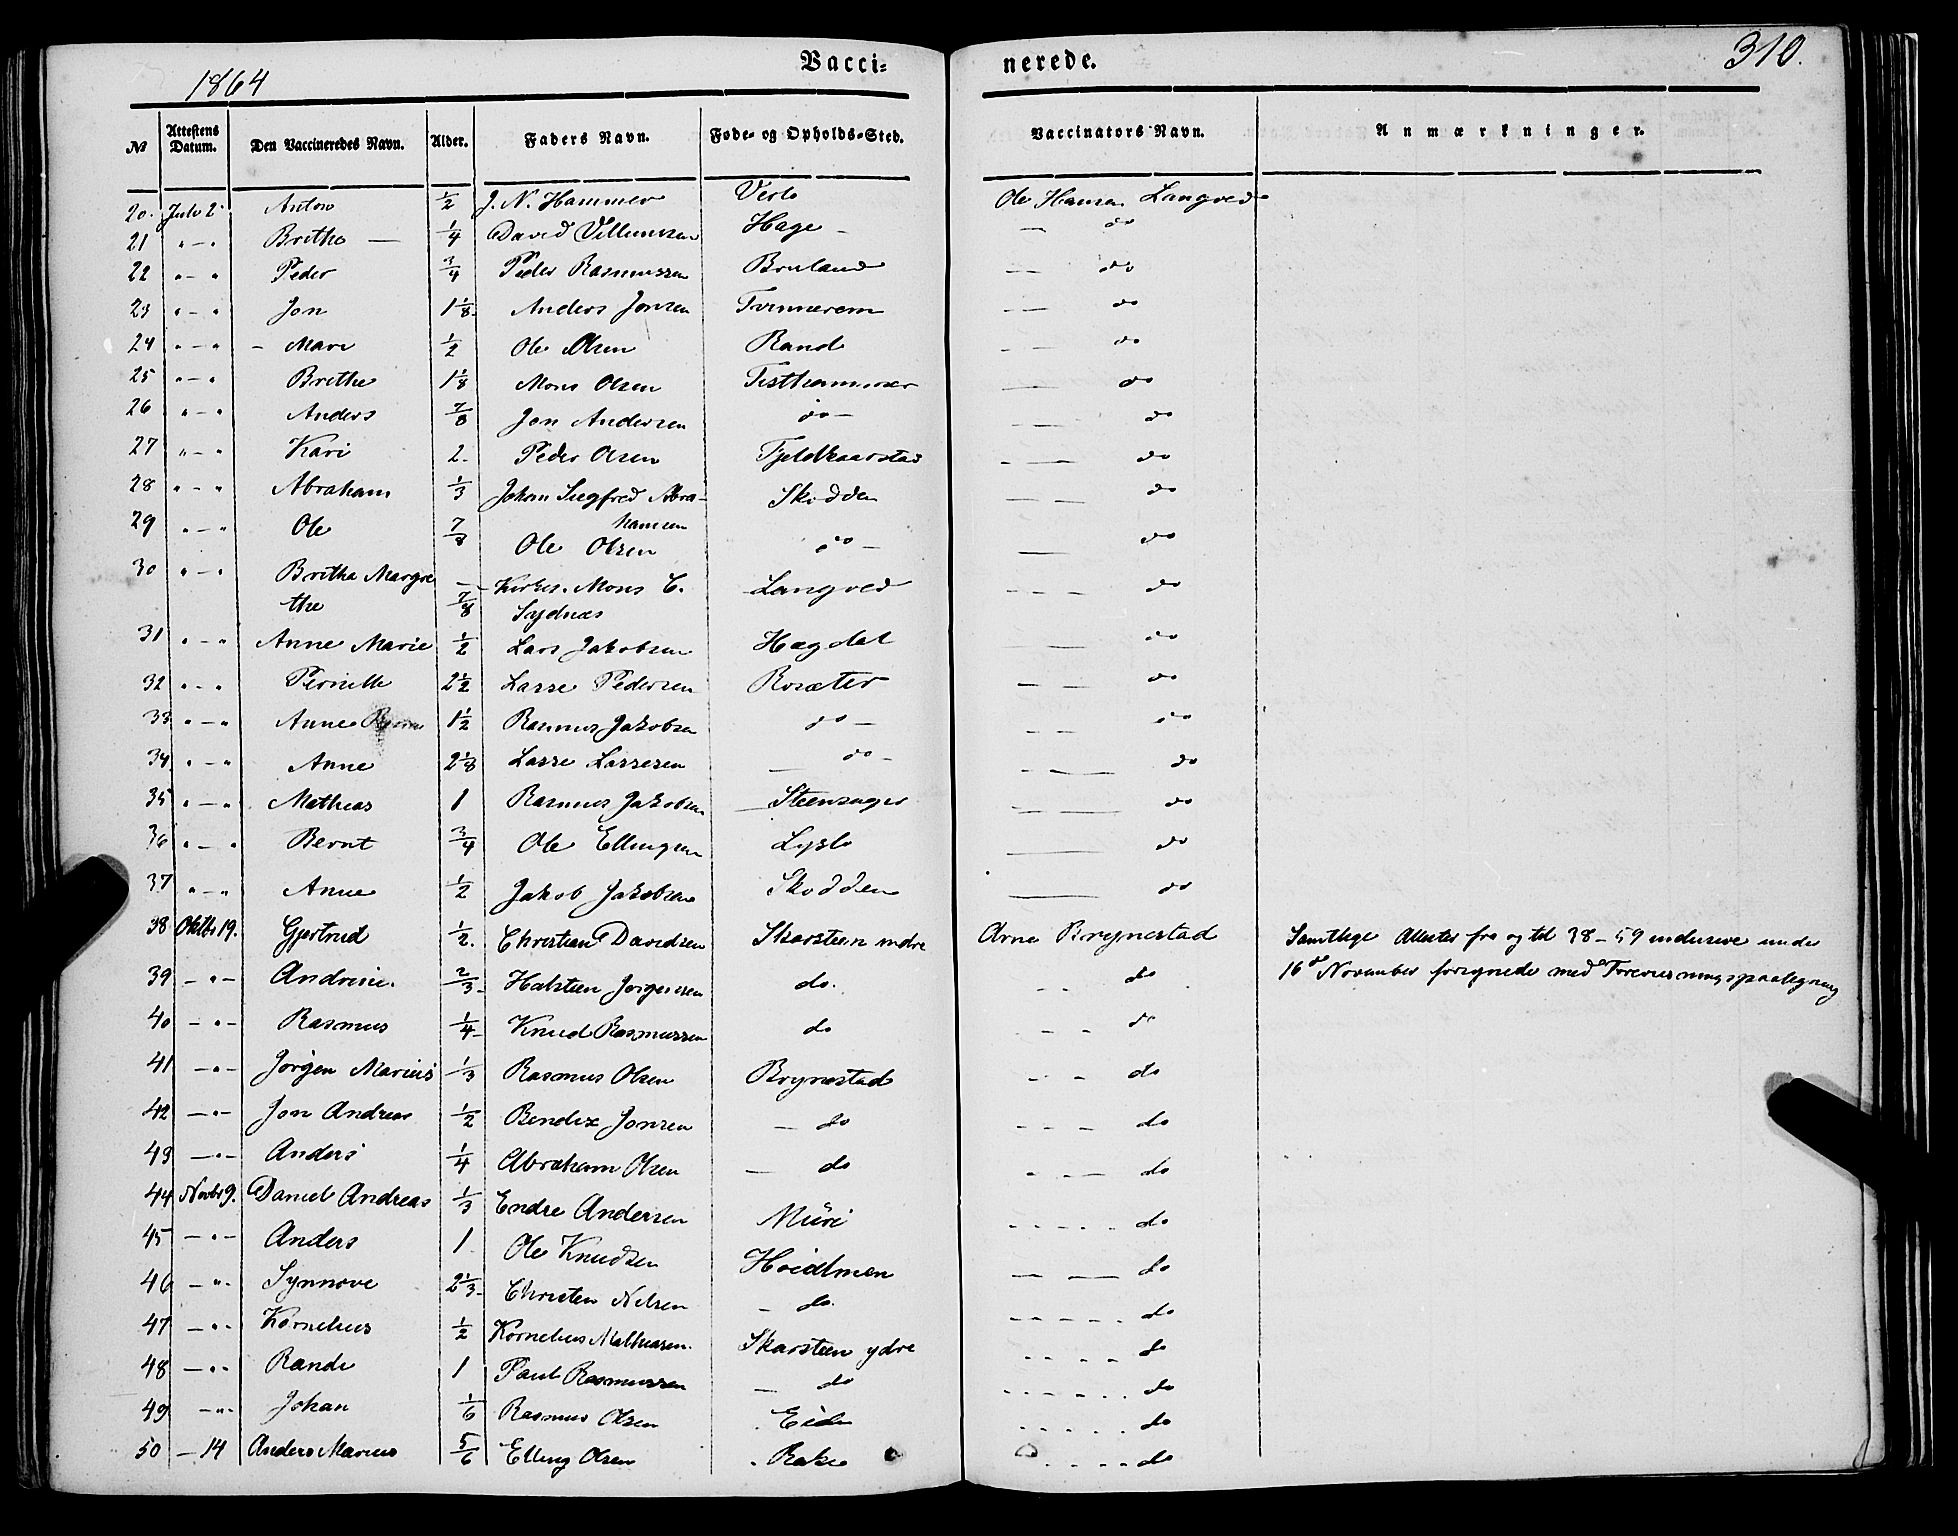 1864 Vacci- nerede. 310.
No Attestens Datum. Den Vaccineredes Navn. Alder. Faders Navn. Føde- og Opholds-Sted. Vaccinators Navn. Anmærkninger.
20. Juli 2 Anton 1/2 J. N. Hammer Ole Hansen Langved
21 " - " Brithe — 1/4 David Villumsen Hage - — do
22 " - " Peder 3/4 Peder Rasmussen Bruland - - do
23 " - " Jon 1 1/8 Anders Jonsen Tvinnerem - — do
24 " - " - Mari 1/2 Ole Olsen Rand - — do
25 " - " Brithe 1 1/8 Mons Olsen Testhammer — do
26 " - " Anders 7/8 Jon Andersen do - — do
27 " - " Kari 2 Peder Olsen Fjeldkaarstad - — do
28 " - " Abraham 1/3 Johan Siegfred Abra- Skodden — do
hamsen
29 " - " Ole 7/8 Ole Olsen do - — do
30 " - " Britha Margre 7/8 Kirkes. Mons C. Langved - - - do
the Sydnæs
31 " - " Anne Marie 1/2 Lars Jakobsen Hagdal — do
32 " - " Pernille 2 1/2 Lasse Pedersen Rosæter - — do
33 " - " Anne 1 1/2 Rasmus Jakobsen do - — do
34 " - " Anne 2 1/8 Lasse Lassesen — do - — do
35 " - " Mathias 1 Rasmus Jakobsen Steensager — do
36 " - " Bernt 3/4 Ole Ellingsen Lyslo — do
37 " - " Anne 1/2 Jakob Jakobsen Skodden — do
38 Oktbr 19. Gjertrud 1/2. Christian Davidsen Skarsteen indre Arne Brynestad Samtlige Attester fra og til 38 - 59 inclusive under
39 - " - Andrine. 2/3 Halsteen Jørgensen do. - - do 16de November forsynede med Foreviisningspaategning
40 - " - Rasmus 1/4 Knud Rasmussen do - - do
41 - " - Jørgen Marius 1/3 Rasmus Olsen Brynestad - - do
42 - " - Jon Andreas 1/2 Bendix Jonsen - do - - - do
43 - " - Anders 1/4 Abraham Olsen — do - - — do
44 Novbr 9. Daniel Andreas 1/3 Endre Andersen Muri - - - - do
45 - " - Anders 1 Ole Knudsen Hoidlmen — — do
46 - " - Synnøve 2 1/3 Christen Nilsen - do. - - - - do
47 - " - Kornelius 1/2 Kornelius Mathiasen. Skarsteen ydre - - - - do
48 - " - Rande 1 Paul Rasmussen — do - - - - do
49 - " - Johan 1/6 Rasmus Olsen Eide - - - - do
50 - 14 Anders Marius 5/6 Elling Olsen Rake - - - - do